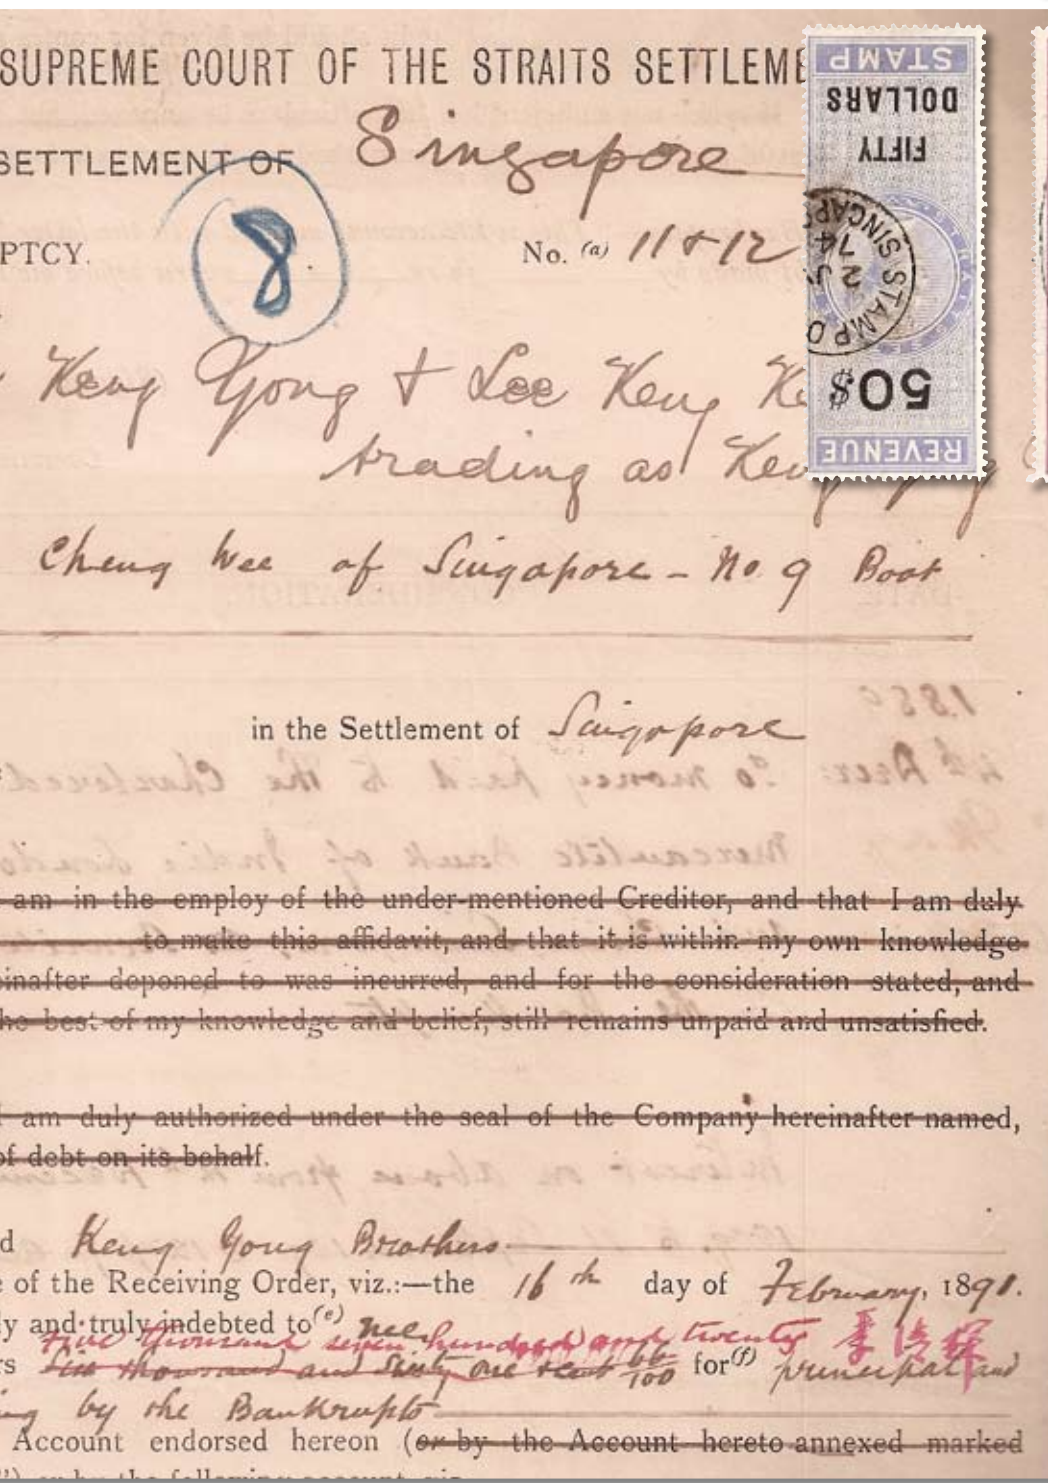 SUPREME COURT OF THE STRAITS SETTLEME
SETTLEMENT OF Singapore
8
PTCY. No. (a) 11 & 12
Keng Yong & Lee Keng
trading as
Cheng Wee of Singapore - No. 9 Boat
in the Settlement of Singapore
am in the employ of the under-mentioned Creditor, and that I am duly
to make this affidavit, and that it is within my own knowledge
inafter deponed to was incurred, and for the consideration stated, and
he best of my knowledge and belief, still remains unpaid and unsatisfied.
I am duly authorized under the seal of the Company hereinafter named,
of debt on its behalf.
d Keng Yong Brothers
e of the Receiving Order, viz.:—the 16th day of February, 1891.
y and truly indebted to (e) me
five thousand seven hundred and twenty
rs thousand and Sixty one 66/100 for (f) principal and
ng by the Bankrupts
Account endorsed hereon (or by the Account hereto annexed marked
") or by the following account, viz.
STAMP
DOLLARS
FIFTY
STAMP O SINGAP
2 J
74
50$
REVENUE